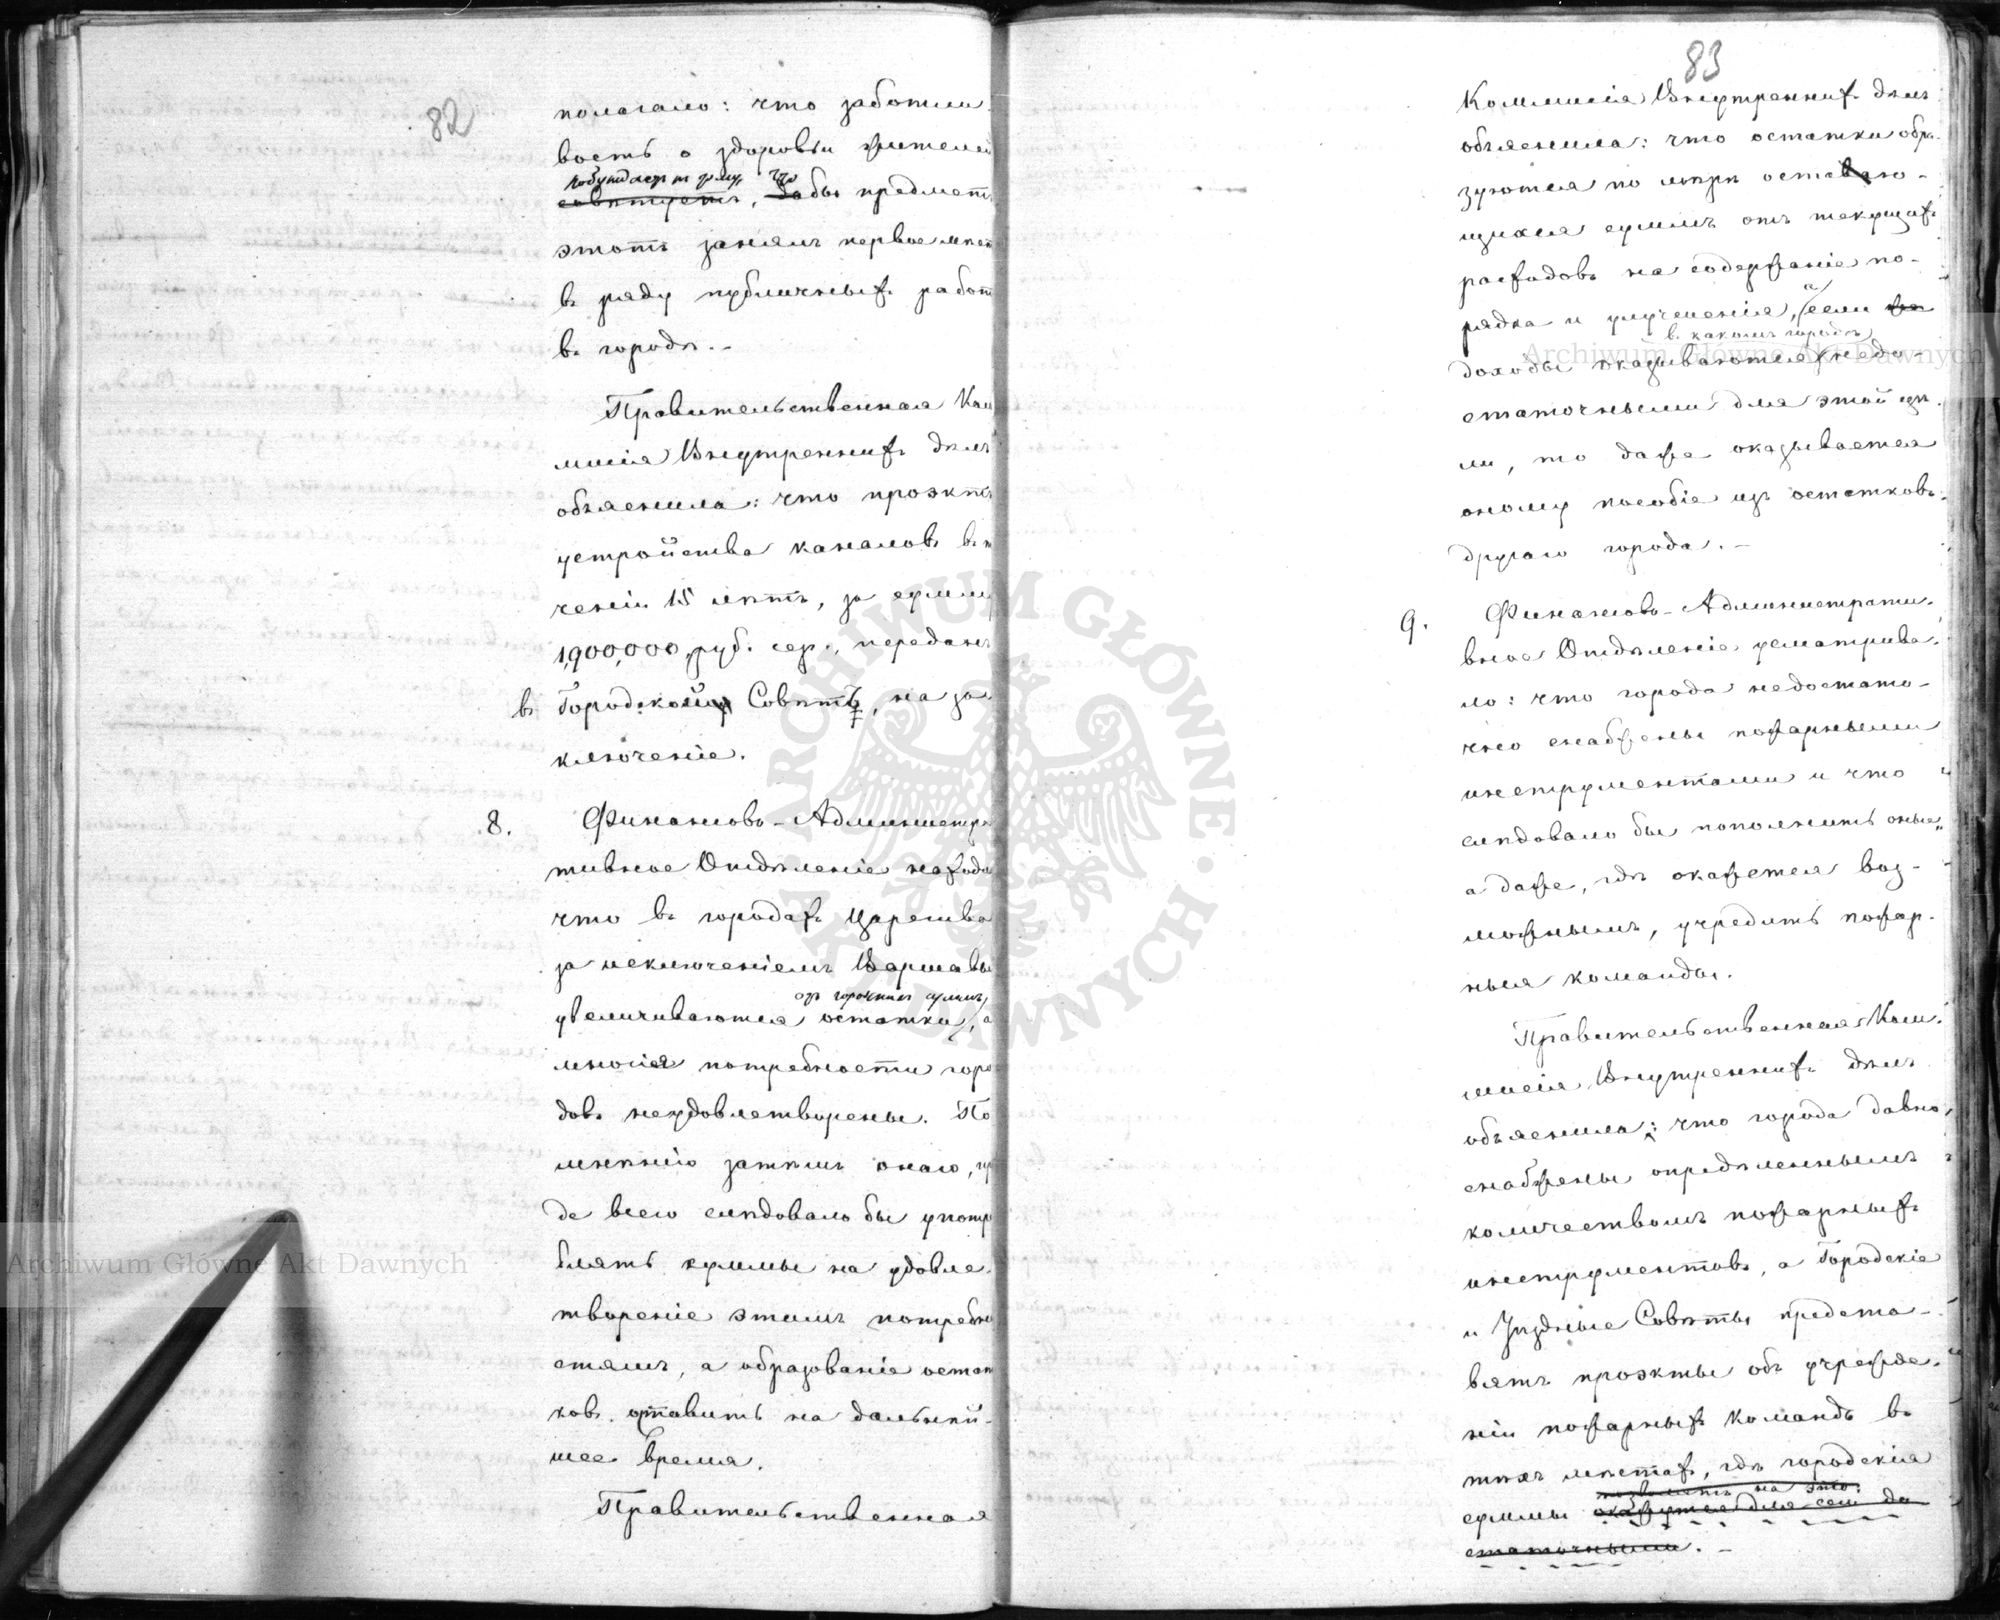 82
полагало: что заботли-
вость о здоровьи жителей
побуждаетъ къ тому, что
совѣтуетъ, дабы предметъ
этотъ занялъ первое мѣсто
въ ряду публичныхъ работъ
въ городѣ.-
Правительственная Ком
мисія Внутреннихъ дѣлъ
объяснила: что проэктъ
устройства каналовъ въ т
ченіи 15 лѣтъ, за сумму
1,900,000 руб. сер., переданъ
въ Городской Совѣтъ, на за
ключеніе.
8. Финансово-Администра
тивное Отдѣленіе находи
что въ городахъ Царства
за исключеніемъ Варшавы
отъ городскихъ суммъ,
увеличиваются остатки, а
многія потребности горо
довъ неудовлетворены. По
мнѣнію затѣмъ онаго, пр
де всего слѣдовало бы употр
блять суммы на удовле-
твореніе этимъ потребно
стямъ, а образованіе остат
ковъ оставить на дальнѣй-
шее время.
Правительственная
83
Коммисія Внутреннихъ дѣлъ
объяснила: что остатки обра-
зуются по мѣрѣ остаю-
щихся суммъ отъ текущихъ
расходовъ на содержаніе по-
рядка и улучшенія, а если
въ какомъ городѣ
доходы оказываются недо-
статочными для этой цѣ-
ли, то даже оказывается
оному пособіе изъ остатковъ
другаго города.-
9. Финансово-Администрати-
вное Отдѣленіе усматрива-
ло: что города недостато-
чно снабжены пожарными
инструментами и что
слѣдовало бы пополнить оные,
а даже, гдѣ окажется воз-
можнымъ, учредить пожар-
ныя команды.
Правительственная Ком-
мисія Внутреннихъ дѣлъ
объяснила: что города давно
снабжены опредѣленнымъ
количествомъ пожарныхъ
инструментовъ, а Городскіе
и Уѣздные Совѣты предста-
вятъ проэкты объ учрежде-
ніи пожарныхъ командъ въ
тѣхъ мѣстахъ, гдѣ городскія
позволятъ на это.
суммы окажутся для сего до
статочными.-
Archiwum Główne Akt Dawnych
Archiwum Główne Akt Dawnych
ARCHIWUM GŁÓWNE · AKT DAWNYCH ·